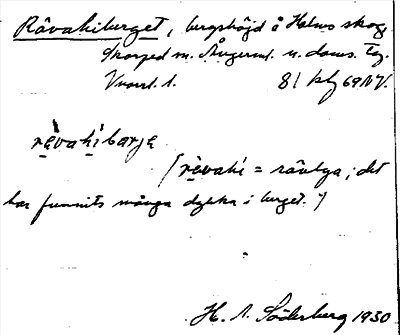 Rävahiberget, bergshöjd å Holms skog.
Skorped sn. Ångerml. n. doms. tg.
Vuorl. 1. 81 kbg 69NV.
rèvahìbarje
(rèvahì = rävlya; det
har funnits många dylika i berget.")
H. A. Söderberg 1930